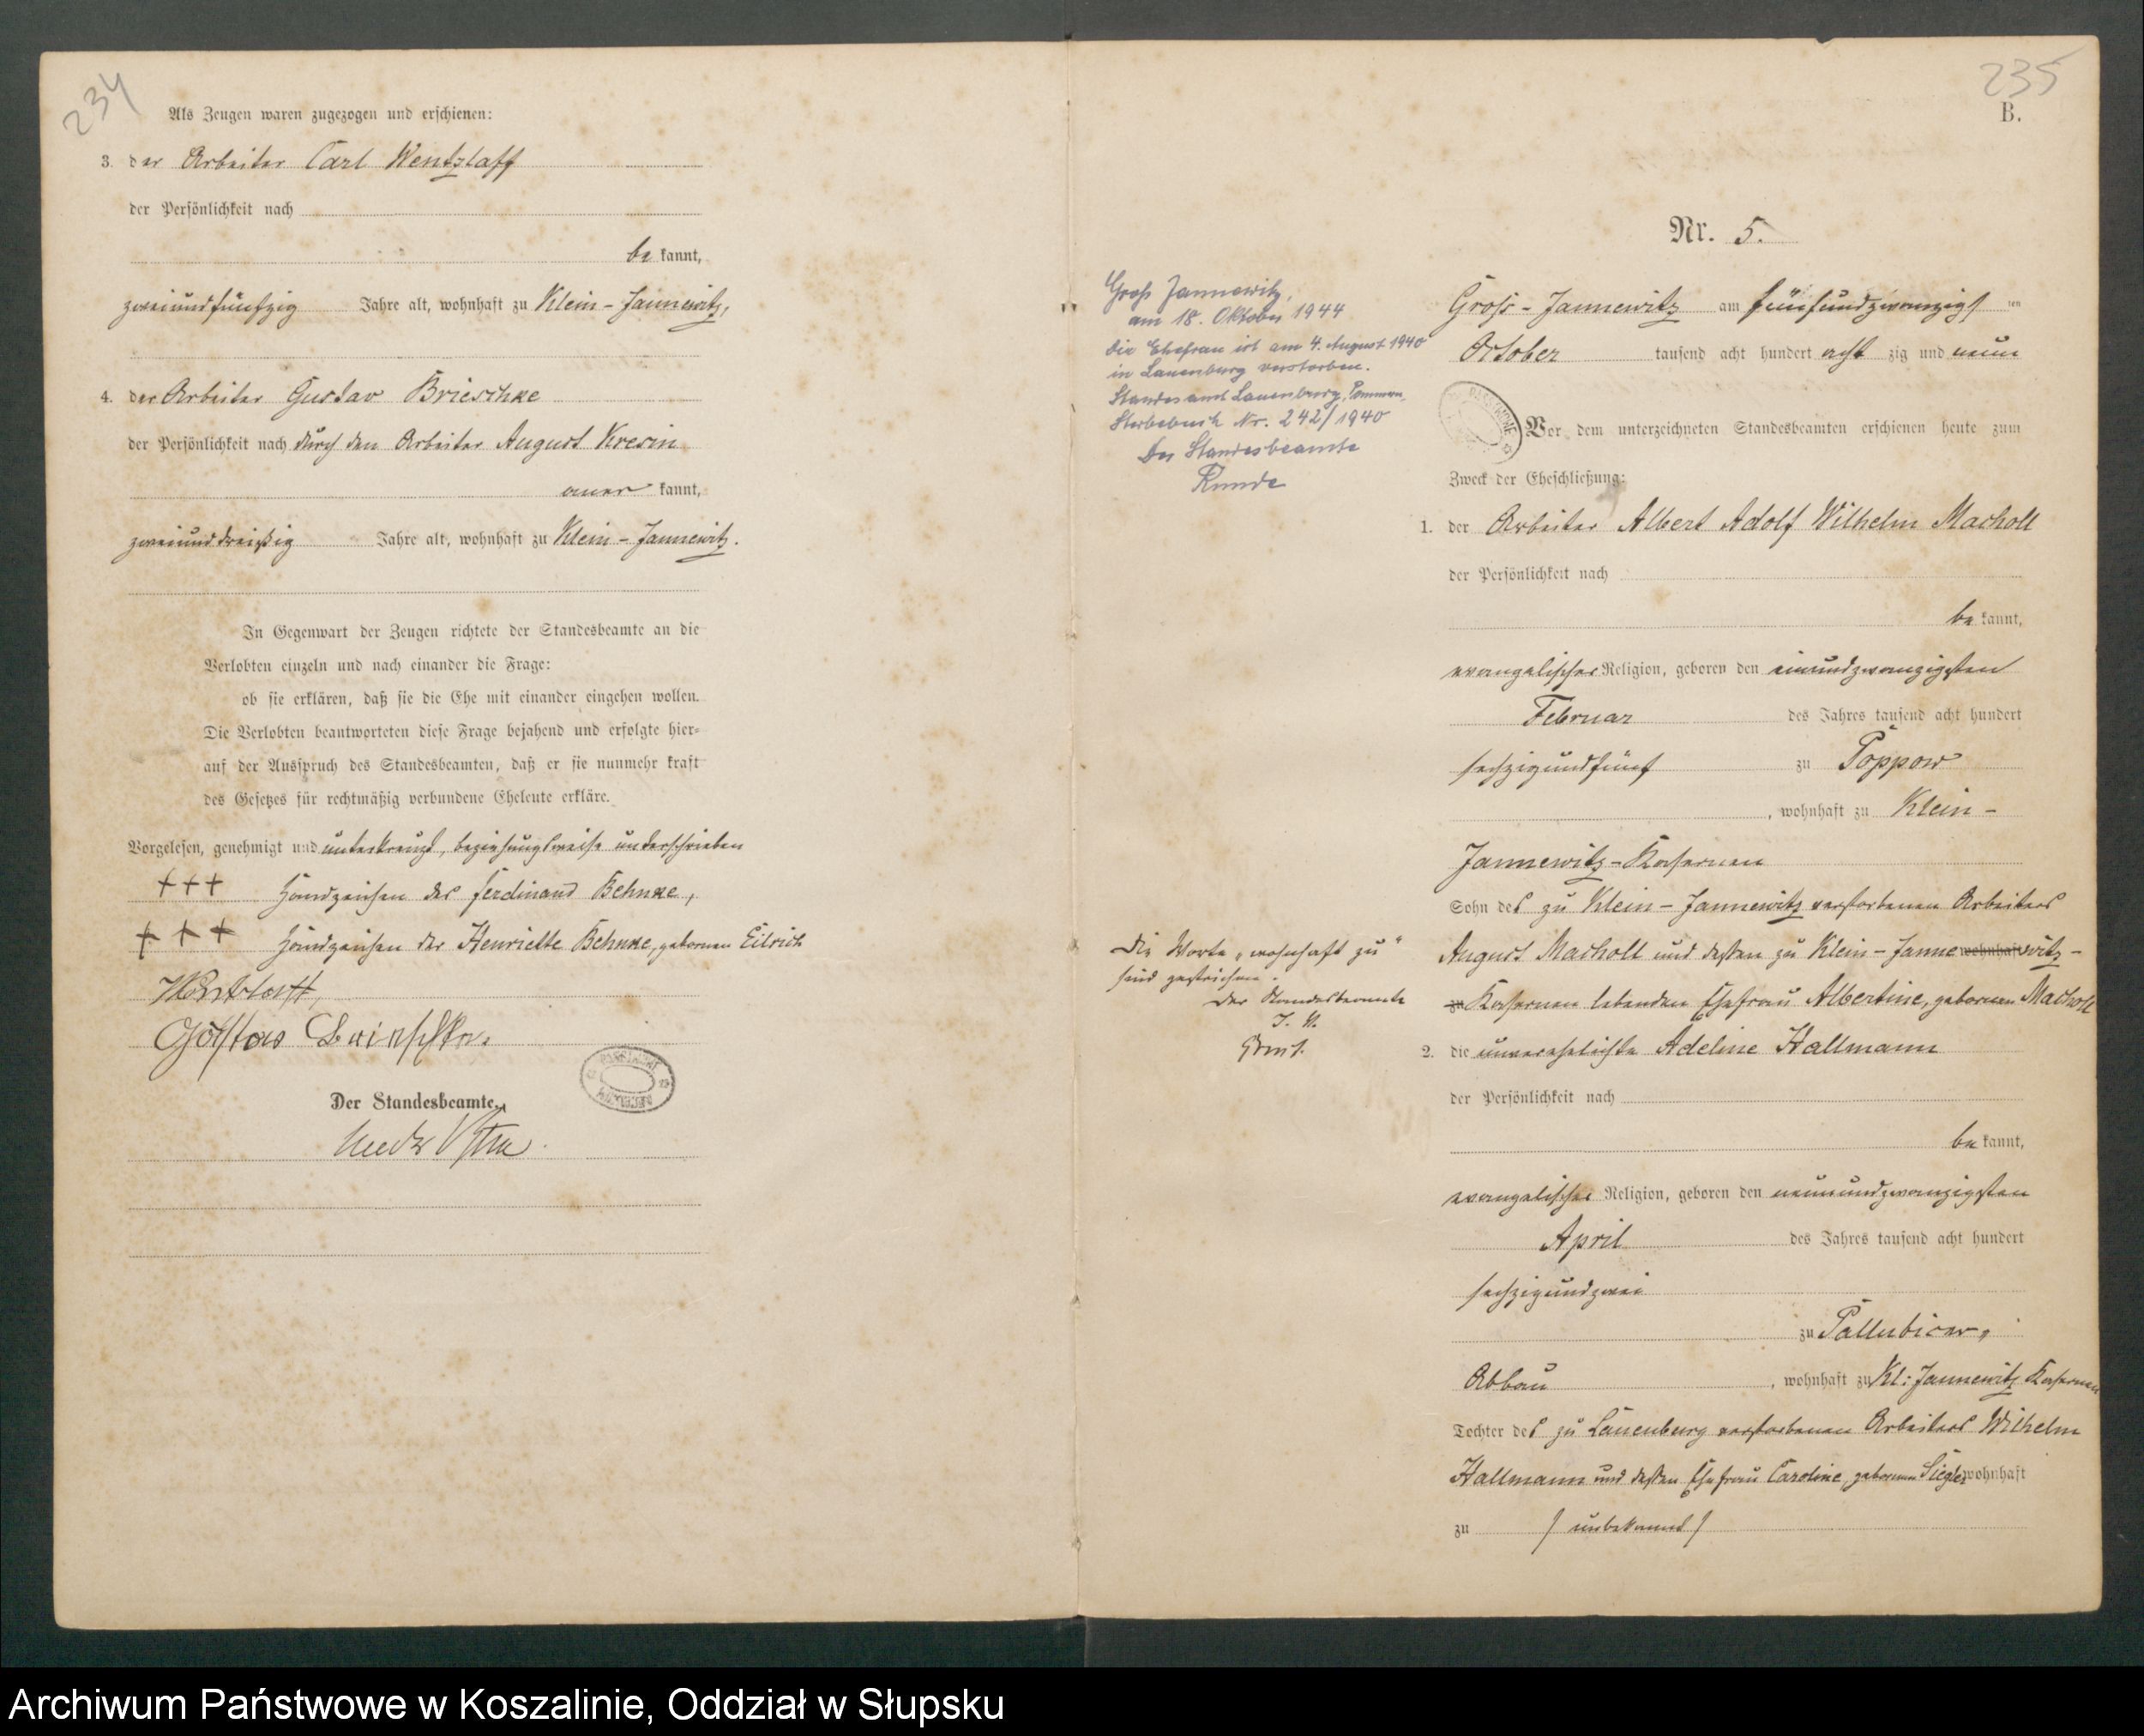 234
Als Zeugen waren zugezogen und erschienen:
3. der Arbeiter Carl Wentzlaff
der Persönlichkeit nach
be kannt,
zweiundfünfzig Jahre alt, wohnhaft zu Klein-Jannewitz,
4. der Arbeiter Gustav Brieschke
der Persönlichkeit nach durch den Arbeiter August Kresin
aner kannt,
zweiunddreißig Jahre alt, wohnhaft zu Klein-Jannewitz.
In Gegenwart der Zeugen richtete der Standesbeamte an die
Verlobten einzeln und nach einander die Frage:
ob sie erklären, daß sie die Ehe mit einander eingehen wollen.
Die Verlobten beantworteten diese Frage bejahend und erfolgte hier-
auf der Ausspruch des Standesbeamten, daß er sie nunmehr kraft
des Gesetzes für rechtmäßig verbundene Eheleute erkläre.
Vorgelesen, genehmigt und unterkreuzt, beziehungsweise unterschrieben
+++ Handzeichen des Ferdinand Behnke,
+++ Handzeichen der Henriette Behnke, gebornen Eilrich
Der Standesbeamte.
235
B.
Nr. 5.
Gross-Jannewitz am fünfundzwanzigs ten
October tausend acht hundert acht zig und neun
Vor dem unterzeichneten Standesbeamten erschienen heute zum
Zweck der Eheschließung:
1. der Arbeiter Albert Adolf Wilhelm Macholl
der Persönlichkeit nach
be kannt,
evangelischer Religion, geboren den einundzwanzigsten
Februar des Jahres tausend acht hundert
sechzigundfünf zu Poppow
, wohnhaft zu Klein-
Jannewitz-Kasernen
Sohn des zu Klein-Jannewitz verstorbenen Arbeiters
August Macholl und dessen zu Klein-Janne wohnhaft witz-
zu Kasernen lebenden Ehefrau Albertine, gebornen Macholl
2. die unverehelichte Adeline Hallmann
der Persönlichkeit nach
be kannt,
evangelischer Religion, geboren den neunundzwanzigsten
April des Jahres tausend acht hundert
sechzigundzwei
zu Pallubice,
Abbau , wohnhaft zu Kl: Jannewitz Kasernen
Tochter des zu Lauenburg verstorbenen Arbeiters Wilhelm
Hallmann und dessen Ehefrau Caroline, gebornen Siegler wohnhaft
zu (unbekannt)
Groß Jannewitz,
am 18. Oktober 1944
Die Ehefrau ist am 4. August 1940
in Lauenburg verstorben.
Standesamt Lauenburg, Pommern,
Sterbebuch Nr. 242/1940
Der Standesbeamte
Runde
Die Worte „wohnhaft zu"
sind gestrichen.
Der Standesbeamte
Archiwum Państwowe w Koszalinie, Oddział w Słupsku